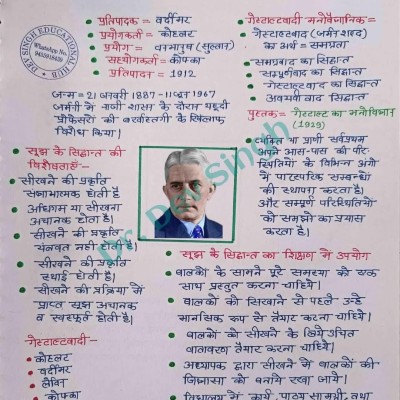 DEV SINGH EDUCATIONAL HUB
WhatsApp No.
प्रतिपादक = वर्दीमर
प्रयोगकर्ता = कोहलर
प्रयोग = वनमानुष (सुल्तान)
सहयोगकर्ता = कोफ्का
प्रतिपादन = 1912
जन्म = 21 जनवरी 1887 - 11 जून 1967
जर्मनी में नाजी शासन के दौरान यहूदी
प्रोफेसरों की बर्खास्तगी के खिलाफ
विरोध किया।
सूझ के सिद्धान्त की
विशेषताएँ -
सीखने की प्रकृति
संज्ञानात्मक होती है
अधिगम या सीखना
अचानक होता है।
सीखने की प्रकृति
यंत्रवत नहीं होती है।
सीखने की प्रकृति
स्थाई होती है।
सीखने की प्रक्रिया में
प्राप्त सूझ अचानक
व स्वस्फूर्त होती है।
गेस्टाल्टवादी -
कोहलर
वर्दीमर
लेविन
कोफ्का
गेस्टाल्टवादी मनोवैज्ञानिक =
गेस्टाल्टवाद (जर्मन शब्द)
का अर्थ = समग्रता
समग्रवाद का सिद्धान्त
सम्पूर्णवाद का सिद्धान्त
गेस्टाल्टवाद का सिद्धान्त
अवयवीवाद सिद्धान्त
पुस्तक = गेस्टाल्ट का मनोविज्ञान
(1929)
व्यक्ति या प्राणी सर्वप्रथम
अपने आस-पास की परि-
स्थितियों के विभिन्न अंगों
में पारस्परिक सम्बन्धों
की स्थापना करता है।
और सम्पूर्ण परिस्थितियों
को समझने का प्रयास
करता है।
सूझ के सिद्धान्त का शिक्षण में उपयोग
बालकों के सामने पूरे समस्या को एक
साथ प्रस्तुत करना चाहिये।
बालकों को सिखाने से पहले उन्हें
मानसिक रूप से तैयार करना चाहिये।
बालकों को सीखने के लिये उचित
वातावरण तैयार करना चाहिये।
अध्यापक द्वारा सीखने में बालकों की
जिज्ञासा को बनाये रखा जाये।
विद्यालय में कार्य, पाठ्य सामग्री, तथा
Dr. Dev Singh